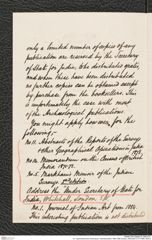 only a limited number of copies of any
publication are reserved by the Secretary
of State for India, like distributed gratis,
and when these have been distributed
no further copies can be obtained except
by purchase from the booksellers. This
is unfortunately the case with most
of the Archæological publications.
You might apply however, for the
following:-
No 11. Abstracts of the Reports of the Surveys
& other Geographical Operations in India
No 12. Memorandum on the Census of British
India 1871-72.
No 5. Markham's Memoir of the Indian
Surveys 2nd Edition
Address the Under Secretary of State for
India, Whitehall, London S.W.
No 1. Journal of Indian Art from 1884.
This interesting publication is not distributed